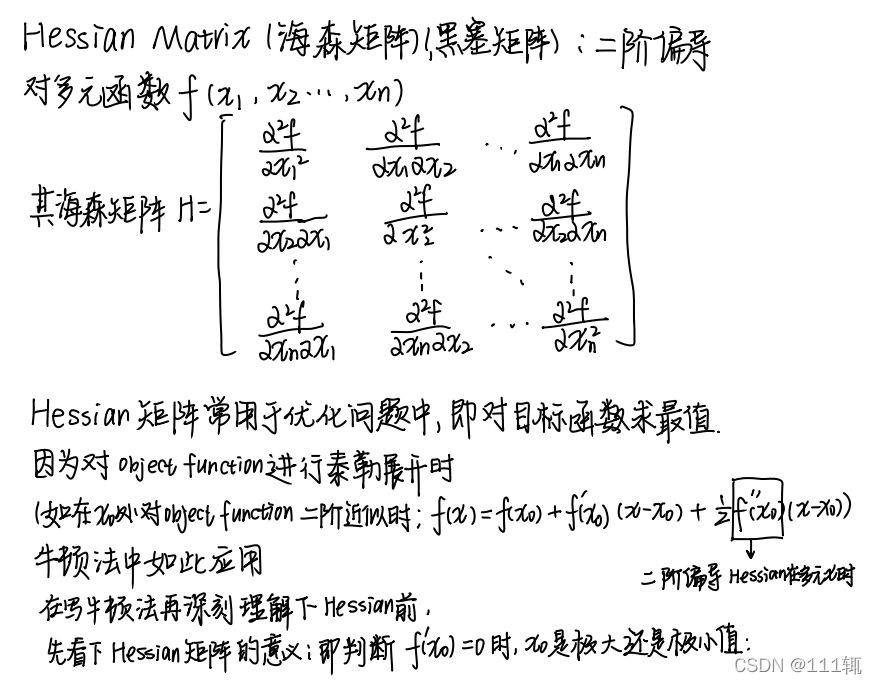 Hessian Matrix (海森矩阵)(黑塞矩阵):二阶偏导
对多元函数 f(x₁, x₂ ..., xn)
∂²f/∂x₁² ∂²f/∂x₁∂x₂ ... ∂²f/∂x₁∂xn
其海森矩阵 H= ∂²f/∂x₂∂x₁ ∂²f/∂x₂² ... ∂²f/∂x₂∂xn
⋮ ⋮ ⋱ ⋮
∂²f/∂xn∂x₁ ∂²f/∂xn∂x₂ ... ∂²f/∂xn²
Hessian 矩阵常用于优化问题中,即对目标函数求最值.
因为对 object function 进行泰勒展开时
(如在x₀处对object function 二阶近似时: f(x) = f(x₀) + f'(x₀) (x-x₀) + ½ f''(x₀)(x-x₀))
牛顿法中如此应用
二阶偏导 Hessian在多元x时
在写牛顿法再深刻理解下Hessian前,
先看下Hessian矩阵的意义:即判断 f'(x₀)=0时, x₀是极大还是极小值:
CSDN @111辄